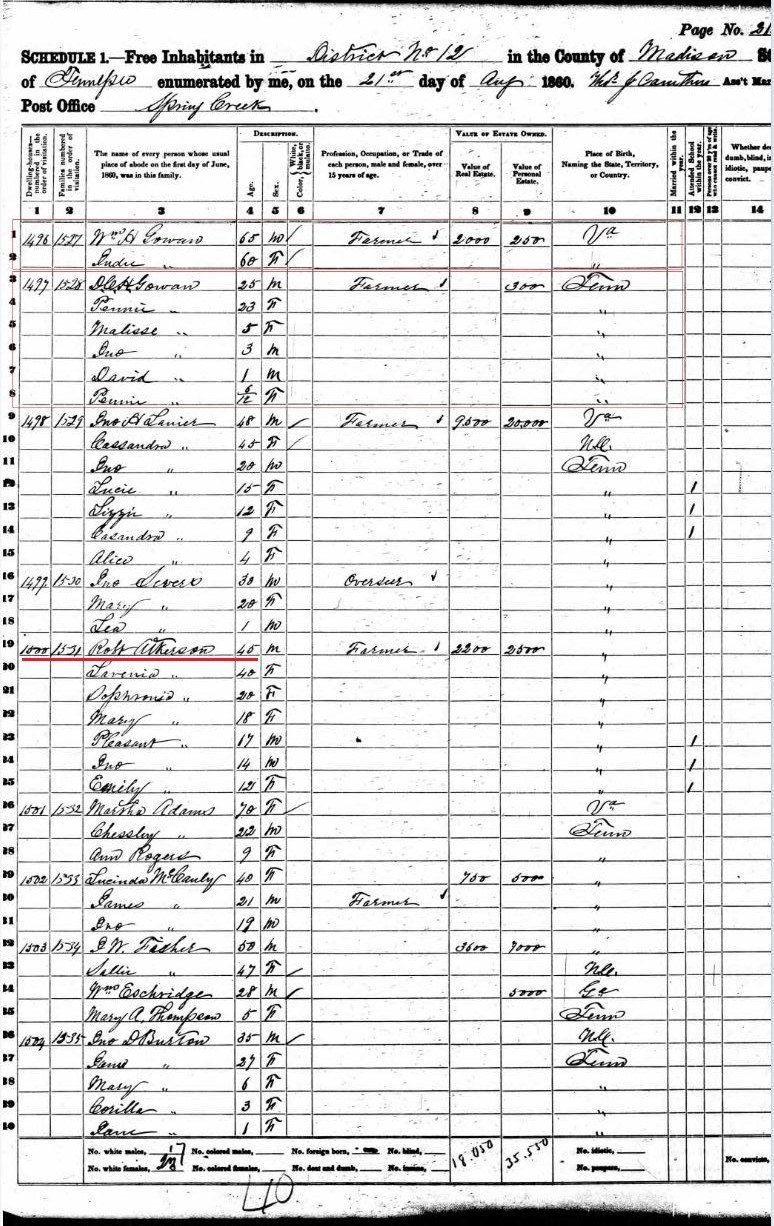 Page No. 21
SCHEDULE 1.—Free Inhabitants in District No 12 in the County of Madison
of Tennessee enumerated by me, on the 21st day of Aug 1860. Ass't Mar
Post Office Spring Creek.
Dwelling-houses—numbered in the order of visitation. Families numbered in the order of visitation. The name of every person whose usual place of abode on the first day of June, 1860, was in this family. DESCRIPTION. Age. Sex. Color, White, black, or mulatto. Profession, Occupation, or Trade of each person, male and female, over 15 years of age. VALUE OF ESTATE OWNED. Value of Real Estate. Value of Personal Estate. Place of Birth, Naming the State, Territory, or Country. Married within the year. Attended School within the year. Persons over 20 y'rs of age who cannot read & write. Whether de dumb, blind, i idiotic, paupe convict.
1 2 3 4 5 6 7 8 9 10 11 12 13 14
1 1496 1527 Wm H Gowan 65 m / Farmer 2000 250 Va
2 " 60 F / "
3 1497 1528 Gowan 25 m Farmer 300 Tenn
4 Pennie " 23 F "
5 Malisse " 5 F "
6 Jno " 3 m "
7 David " 1 m "
8 Pennie " 6/12 F "
9 1498 1529 Jno H Lanier 48 m / Farmer 9500 20,000 Va
10 Cassandra " 45 F / N.C.
11 Jno " 20 m Tenn
12 Lucie " 15 F " 1
13 Lizzie " 12 F " 1
14 Casandra " 9 F " 1
15 Alice " 4 F "
16 1499 1530 Jno 30 m Overseer "
17 Mary " 20 F "
18 Lea " 1 m "
19 1500 1531 Robt Atkerson 45 m Farmer 2200 2500 "
20 Lavenia " 40 F "
21 Sophronia " 20 F "
22 Mary " 18 F "
23 Pleasant " 17 m " 1
24 Jno " 14 m " 1
25 Emily " 12 F " 1
26 1501 1532 Martha Adams 70 F / Va
27 Chessley " 22 m Tenn
28 Ann Rogers 9 F "
29 1502 1533 Lucinda McCauly 40 F 750 500 "
30 James " 21 m Farmer "
31 Jno " 19 m "
32 1503 1534 W. Fisher 50 m 3600 7000 "
33 Sallie " 47 F / N.C.
34 Wm Eschridge 28 m / 5000 Ga
35 Mary A. Thompson 5 F Tenn
36 1504 1535 Jno D Burton 35 m / N.C.
37 Jane " 27 F Tenn
38 Mary " 6 F "
39 Corilla " 3 F "
40 Jane " 1 F "
No. white males, 17 No. colored males, No. foreign born, No. blind, 18.050 35.550 No. idiotic,
No. white females, 23 No. colored females, No. deaf and dumb, No. insane, No. paupers, No. convicts,
40